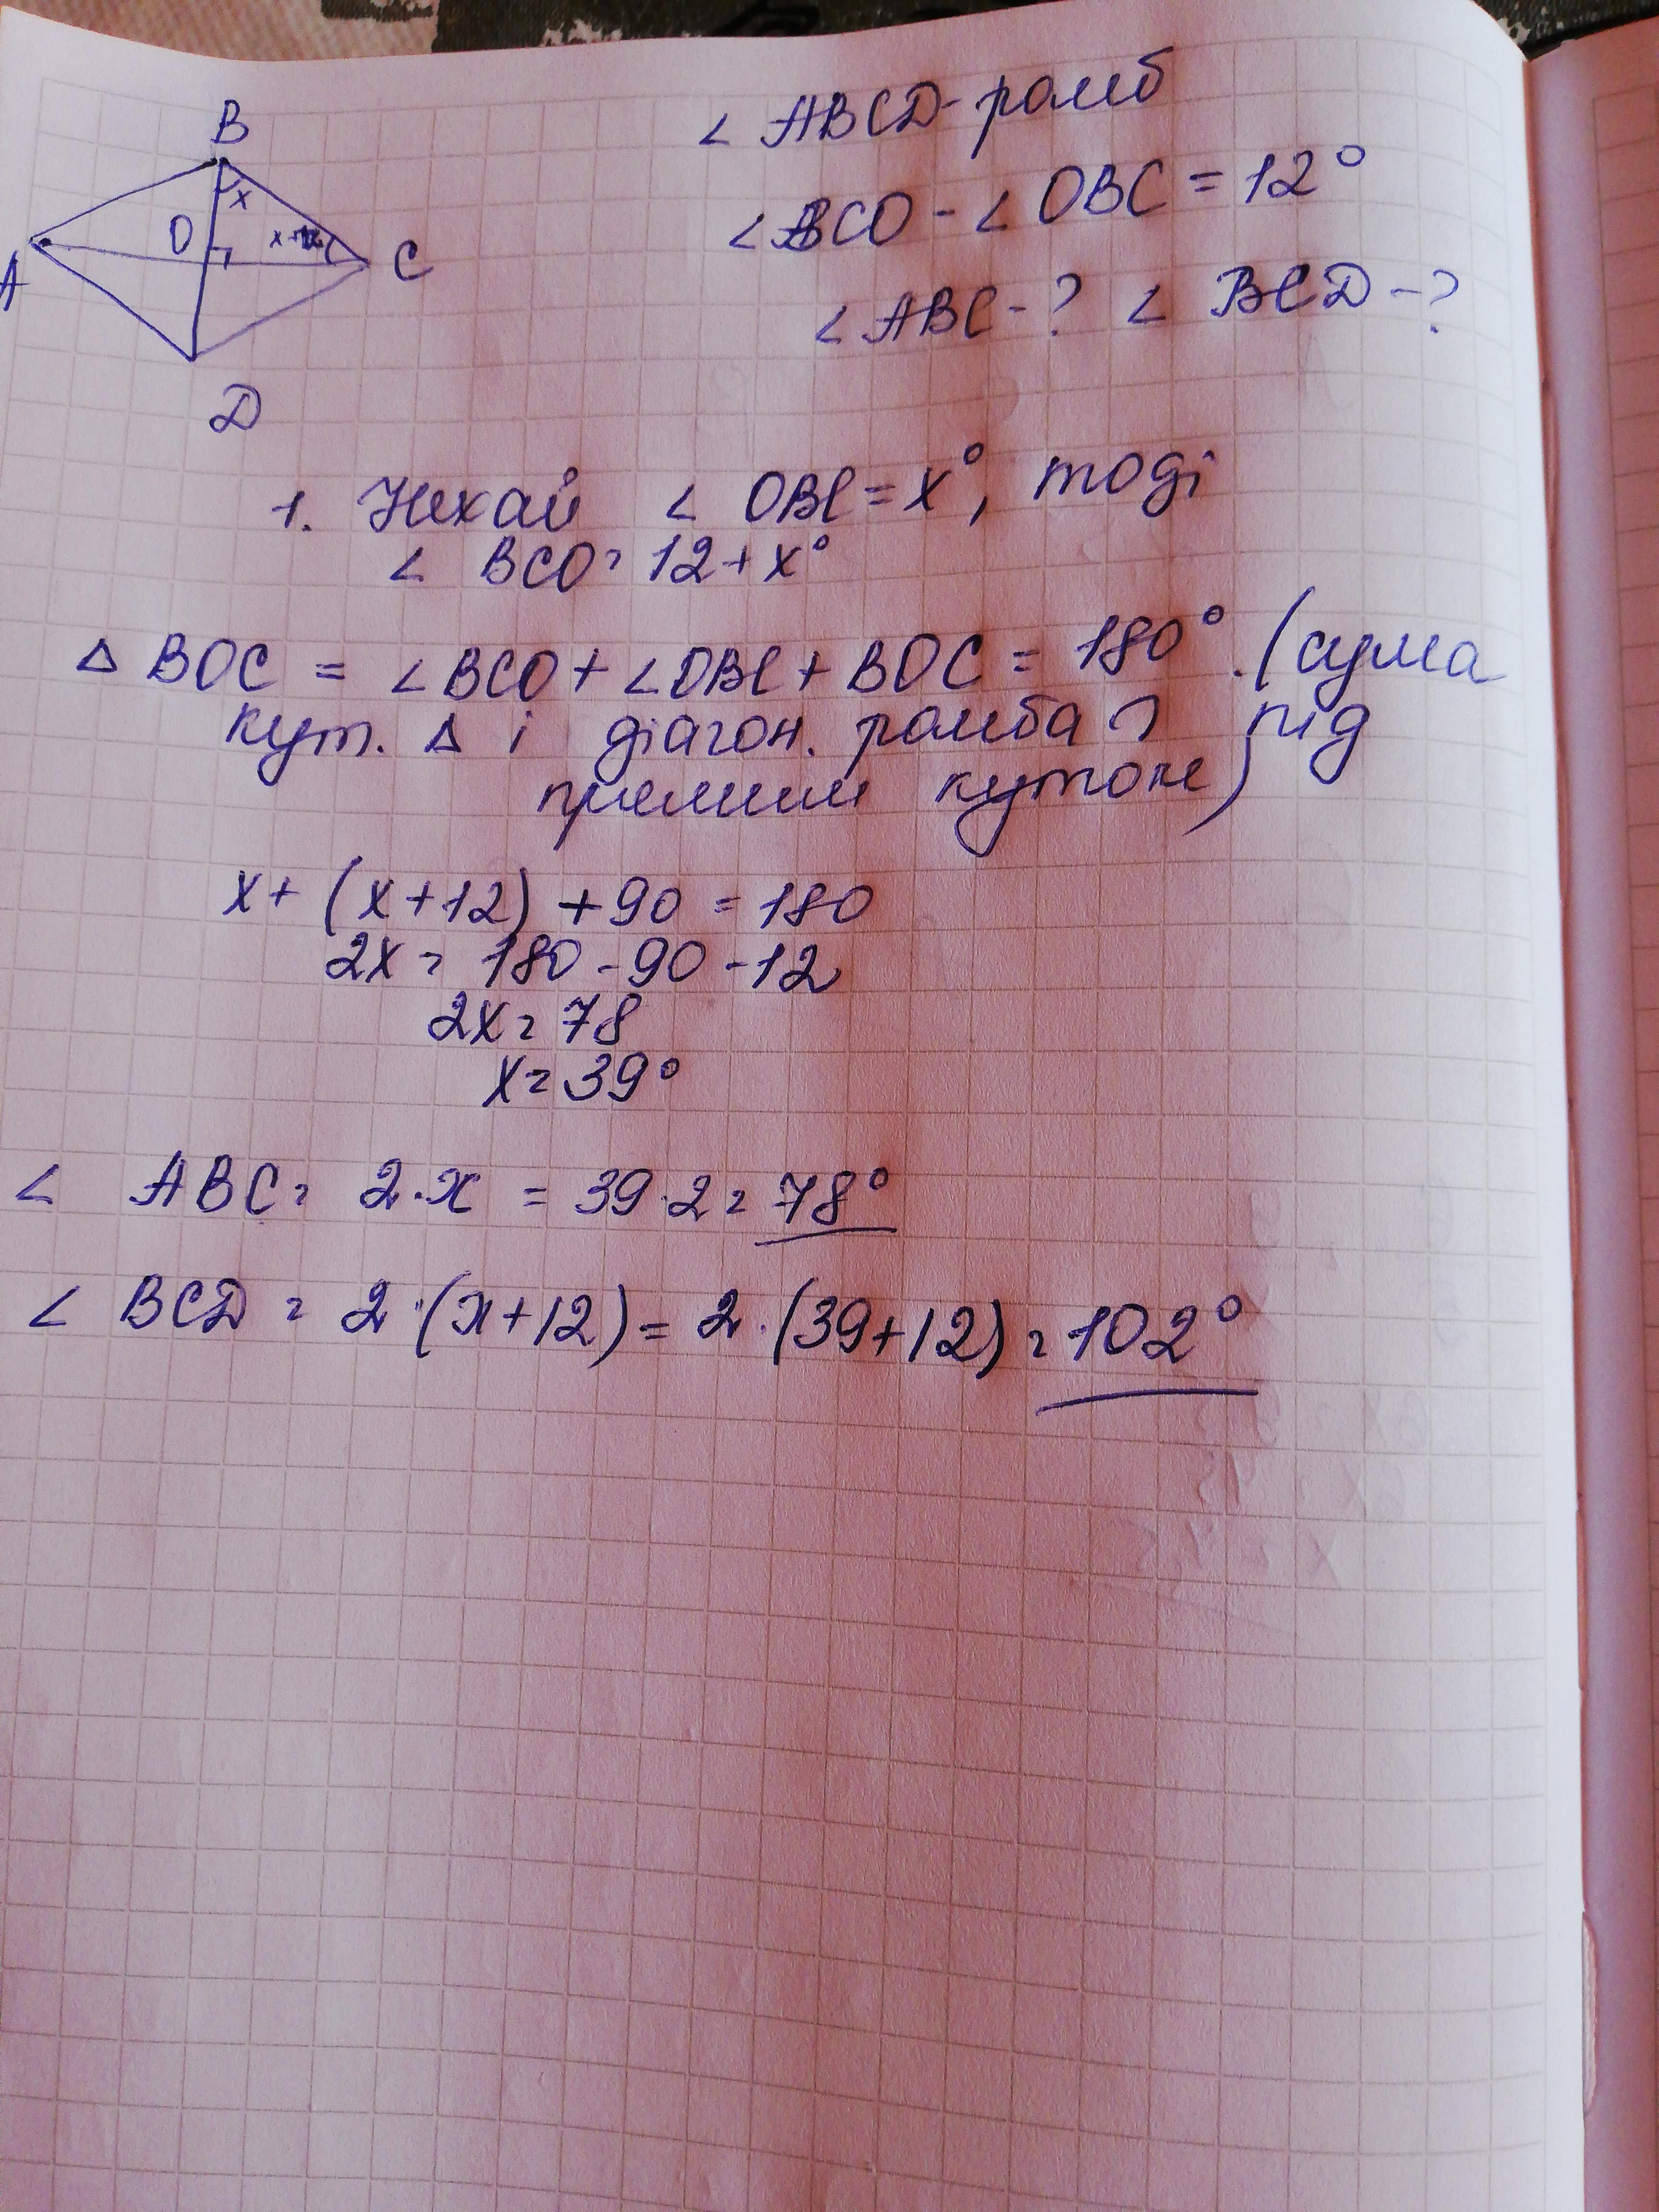 B
x
O
A
C
D
∠ ABCD - ромб
∠BCO - ∠ OBC = 12°
∠ ABC - ? ∠ BCD - ?
1. Нехай ∠ OBC = x°, тоді
∠ BCO = 12 + x°
△ BOC = ∠BCO + ∠OBC + BOC = 180°. (сума
кут. △ і діагон. ромба ∩ під
прямим кутом)
x + (x + 12) + 90 = 180
2x = 180 - 90 - 12
2x = 78
x = 39°
∠ ABC = 2 · x = 39 · 2 = 78°
∠ BCD = 2 · (x + 12) = 2 · (39 + 12) = 102°